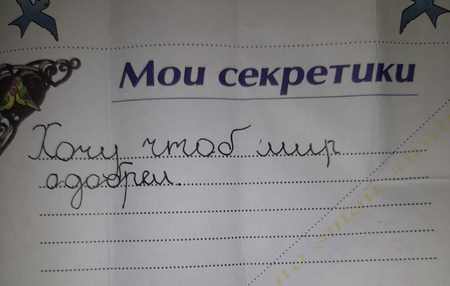 Мои секретики
Хочу чтоб мир
одобрел.